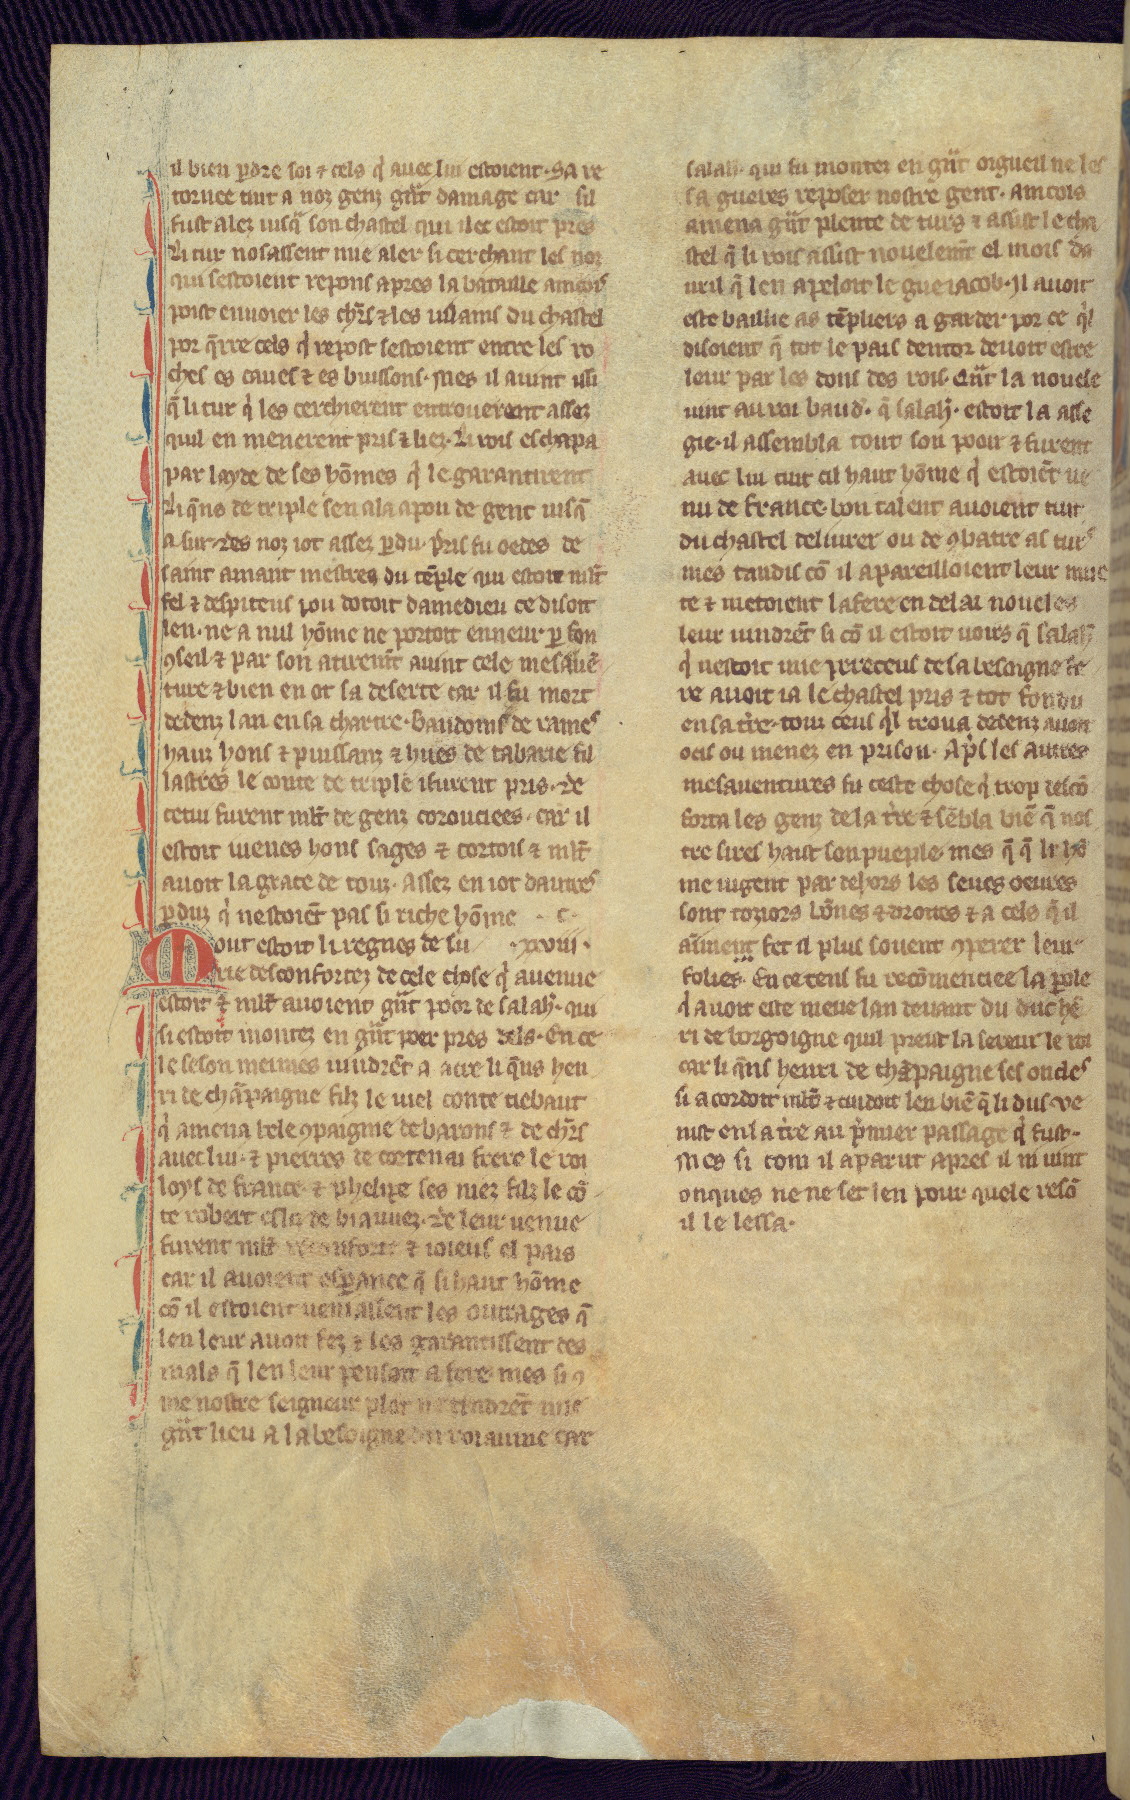 il bien ꝑdre soi ⁊ cels q̇ auec lui estoient. Sa re
tornee tint a noz genz gn̄t damage car sil
fust alez iusq̄ son chastel qui ilec estoit pres
Li tur nosassent mie aler si cerchant les noz
qui sestoient repons apres la bataille aincois
poist enuoier les chr̄s ⁊ les uilains du chastel
por q̄rre cels q̇ repost sestoient entre les ro
ches es caues ⁊ es buissons. Mes il auint issi
q̄ li tur q̇ les cerchierent entrouerent assez
quil en menerent pris ⁊ liez. Li rois eschapa
par layde de ses hōmes q̇ le garantirent
Li q̄ns de triple sen ala a pou de gent iusq̄
a sur. Des noz iot assez ꝑdu. pris fu oedes de
saint amant mestres du tēple qui estoit ml̄t
fel ⁊ despiteus pou dotoit damedieu ce disoit
len. ne a nul hōme ne portoit enneur ꝑ son
ꝯseil ⁊ par son atirem̄t auint cele mesauē
ture ⁊ bien en ot sa deserte car il fu mort
dedenz lan en sa chartre. baudoins de rames
hauz hons ⁊ puissanz ⁊ hues de tabarie fil
lastres le conte de triple ifurent pris. De
cetui furent ml̄t de genz corouciees. car il
estoit iuenes hons sages ⁊ cortois ⁊ ml̄t
auoit la grace de touz. Assez en iot dautres
ꝑduz q̇ nestoiēt pas si riche hōme . c.
Mout estoit li regnes de su .xxviij.
rie desconfortez de cele chose q̇ auenue
estoit ⁊ ml̄t auoient gn̄t poor de salah̄. qui
si estoit montez en gn̄t poer pres dels. En ce
le seson meimes uindrēt a acre li q̄ns hen
ri de chāpaigne filz le uiel conte tiebaut
q̇ amena bele ꝯpaignie de barons ⁊ de chr̄s
auec lui. ⁊ pierres de cortenai frere le roi
loys de france. ⁊ phelipe ses niez filz le cō
te robert esliz de biauuez. De leur uenue
furent ml̄t reconforte ⁊ ioieus el pais
car il auoient esꝑance q̄ si haut hōme
cō il estoient ueniassent les outrages q̄
len leur auoit fez ⁊ les garantissent des
mals q̄ len leur pensoit a fere. mes si ꝯ
me nostre seigneur plot ne tindrēt mie
gn̄t lieu a la besoigne du roiaume car
salah̄. qui fu montez en gn̄t orgueil ne les
sa gueres reposer nostre gent. aincois
amena gn̄t plente de turs ⁊ assist le cha
stel q̄ li rois assist nouelem̄t el mois da
uril q̄ len apeloit le gue iacob. Il auoit
este baillie as tēpliers a garder por ce q̇l
disoient q̄ tot le pais dentor deuoit estre
leur par les dons des rois. Qn̄t la nouele
uint au roi baud. q̄ salah̄. estoit la asse
gie. il assembla tout son pooir ⁊ furent
auec lui tuit cil haut hōme q̇ estoiēt ue
nu de france. bon talent auoient tuit
du chastel deliurer ou de ꝯbatre as turs
mes tandis cō il apareilloient leur mue
te ⁊ metoient lafere en delai noueles
leur uindrēt si cō il estoit uoirs q̄ salah̄
q̇ nestoit mie pereceus de sa besoigne fe
re auoit ia le chastel pris ⁊ tot fondu
en sa tr̄e. touz ceus q̇l troua dedenz auoit
ocis ou menez en prison. Ap̄s les autres
mesauentures fu ceste chose q̇ trop descō
forta les genz de la tr̄e ⁊ sēbla biē q̄ nos
tre sires haist son pueple. mes q̄ q̄ li hō
me iugent par dehors les seues oeures
sont toziors bōnes ⁊ droites ⁊ a cels q̄ il
aiment fet il plus souent ꝯperer leur
folies. En ce tens fu recōmenciee la ꝑole
q̇ auoit este meue lan deuant du duc hē
ri de borgoigne quil preist la sereur le roi
car li q̄ns henri de chāpaigne ses oncles
si acordoit ml̄t ⁊ cuidoit len biē q̄ li dus ve
nist en la tr̄e au p̄mier passage q̇ fust.
Mes si com il aparut apres il ni uint
onques ne ne set len pour quele resō
il le lessa.